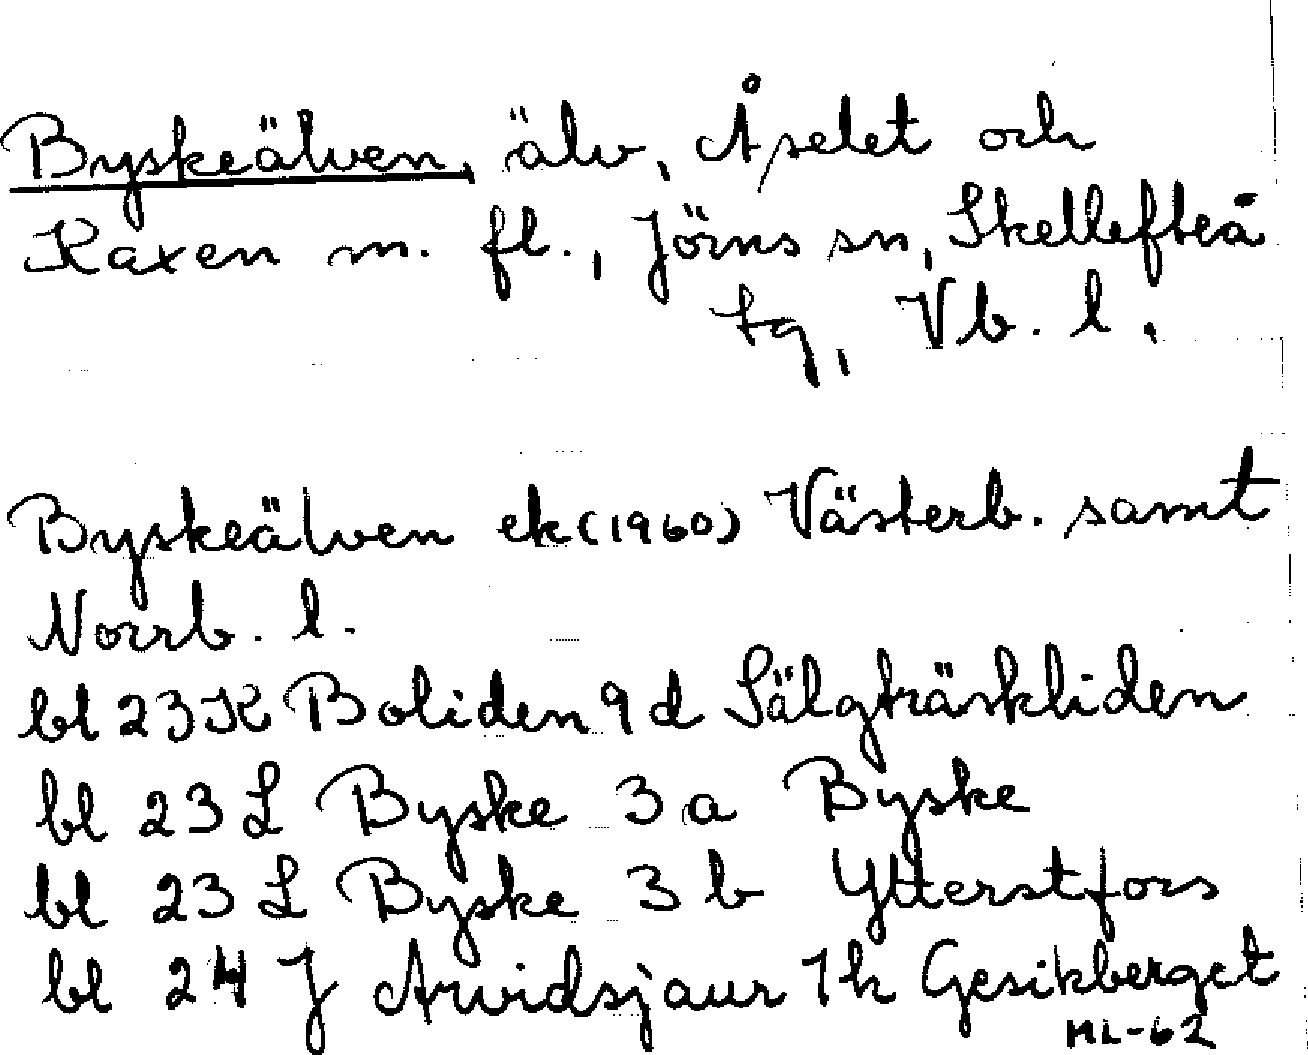 Byskeälven, älv, Åselet och
Kaxen m. fl., Jörns sn, Skellefteå
tg, Vb. l.
Byskeälven ek (1960) Västerb. samt
Norrb. l.
bl 23 K Boliden 9 d Sälgträskliden
bl 23 L Byske 3 a Byske
bl 23 L Byske 3 b Ytterstfors
bl 24 J Arvidsjaur 1 h Gesikberget
ML-62